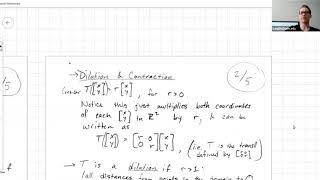 2/5
2/5
→ Dilation & Contraction
Consider T([x y]) = r[x y], for r>0.
Notice this just multiplies both coordinates
of each [x y] in ℝ² by r, & can be
written as
T([x y]) = [r 0 0 r][x y], (i.e. T is the transf.
defined by [r 0 0 r])
→ T is a dilation if r>1:
(all distances from points in the domain to